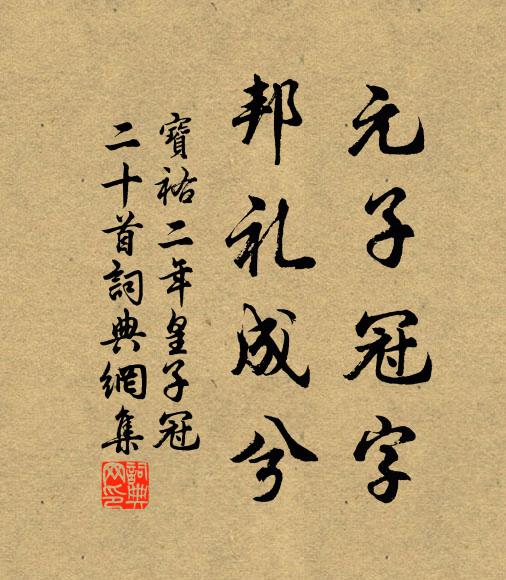 元子冠字
邦礼成兮
寶祐二年皇子冠
二十首詞典網集
詞典网印